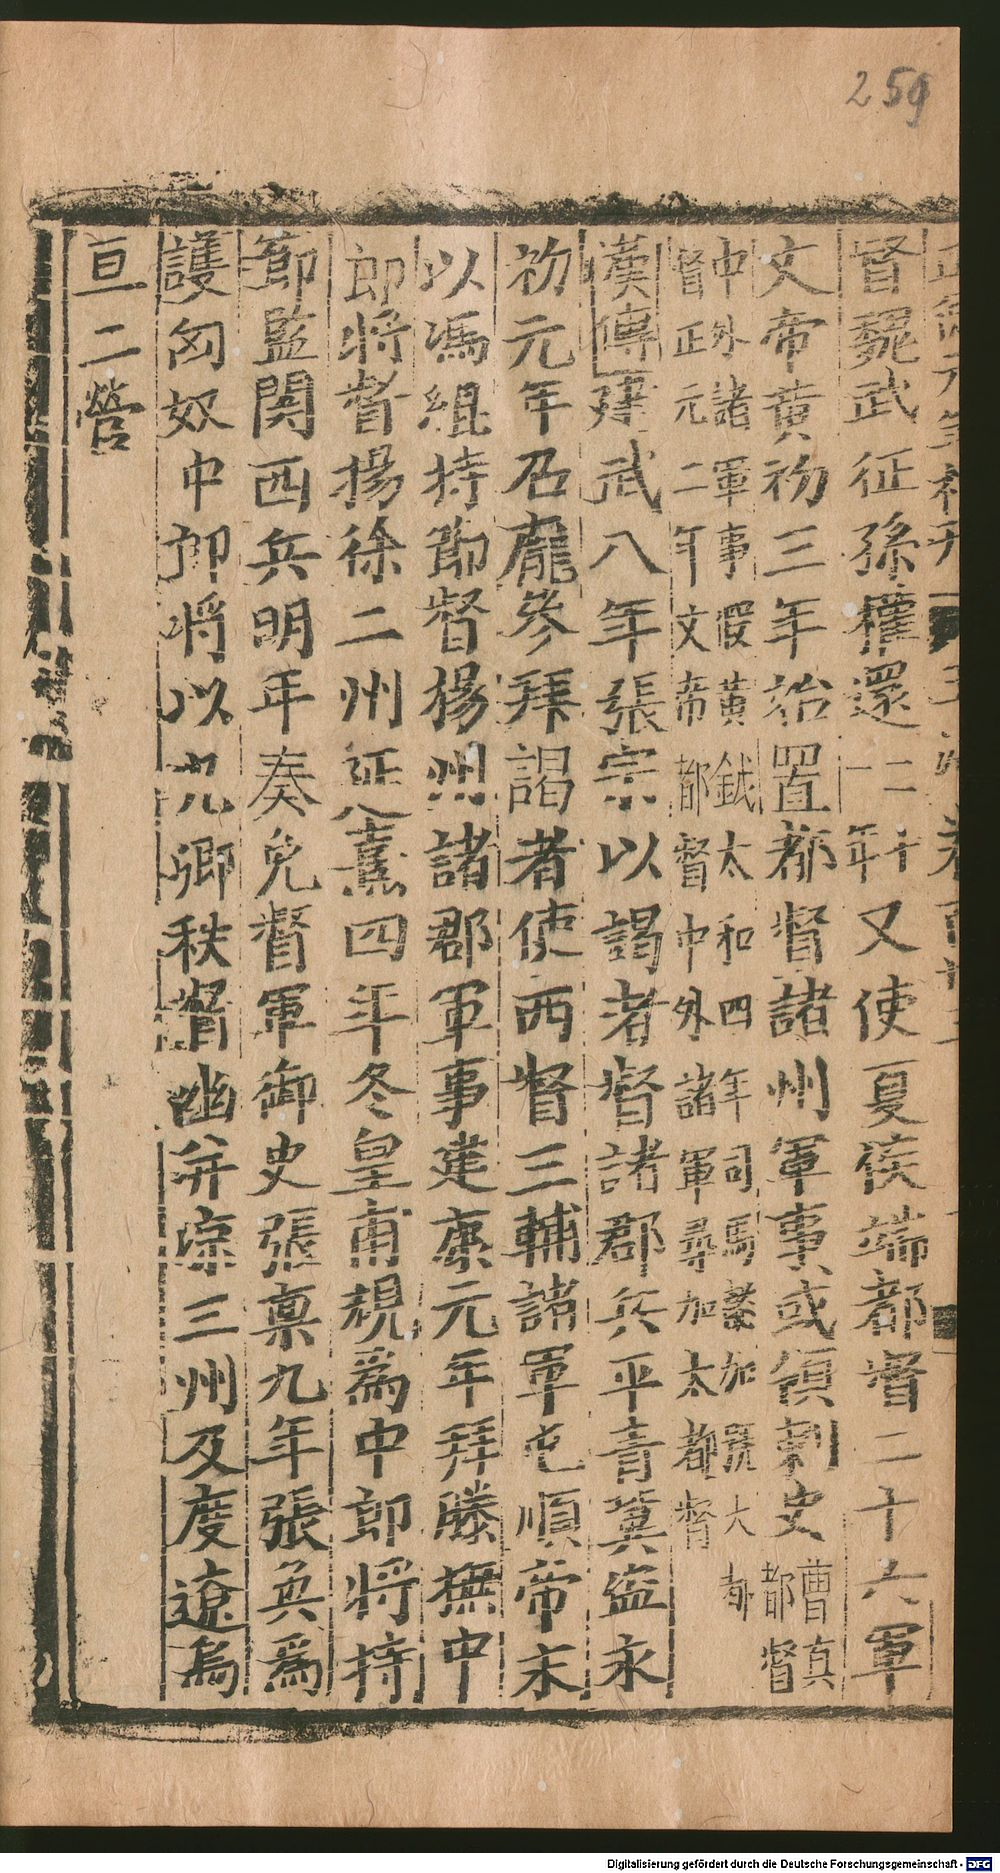 259
督魏武征孫權還二十一年又使夏侯端都督二十六軍
文帝黃初三年始置都督諸州軍事或領刺史曹真都督
中外諸軍事假黃鉞太和四年司馬懿加號大都
督正元二年文帝都督中外諸軍尋加太都督
漢傳建武八年張宗以謁者督諸郡兵平青冀盗永
初元年召龐參拜謁者使西督三輔諸軍屯順帝末
以馮緄持節督揚州諸郡軍事建康元年拜滕撫中
郎將督揚徐二州延熹四年冬皇甫規為中郎將持
節監関西兵明年奏免督軍御史張稟九年張奐為
護匈奴中郎將以九卿秩督幽并凉三州及度遼烏
亘二營
Digitalisierung gefördert durch die Deutsche Forschungsgemeinschaft - DFG